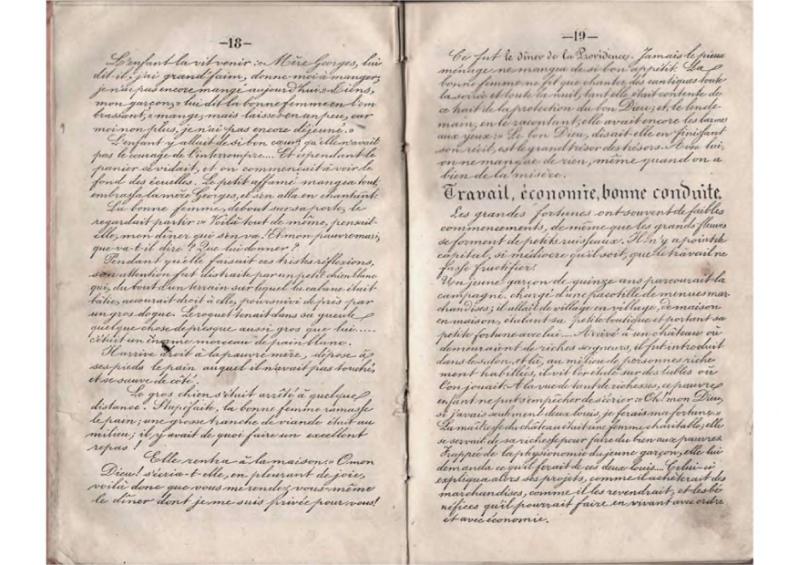 —18—
L'enfant la vit venir: «Mère Georges, lui
dit-il, j'ai grand'faim, donne-moi à manger;
je n'ai pas encore mangé aujourd'hui. Tiens,
mon garçon,» lui dit la bonne femme en l'em
brassant, «mange, mais laisse-en un peu, car
moi non plus, je n'ai pas encore déjeuné.»
L'enfant y allait de si bon cœur, qu'elle n'avait
pas le courage de l'interrompre... Et cependant le
panier se vidait, et on commençait à voir le
fond des écuelles. Le petit affamé mangea tout,
embrassa la mère Georges, et s'en alla en chantant.
La bonne femme, debout sur sa porte, le
regardait partir: «Voilà tout de même, pensait-
elle, mon dîner qui s'en va. Et mon pauvre mari,
que va-t-il dire? Que lui donner?
Pendant qu'elle faisait ces tristes réflexions,
son attention fut distraite par un petit chien blanc
qui, du bout d'un terrain sur lequel la cabane était
bâtie, accourait droit à elle, poursuivi de près par
un gros dogue. Le roquet tenait dans sa gueule
quelque chose de presque aussi gros que lui....
c'était un énorme morceau de pain blanc.
Il arrive droit à la pauvre mère, dépose à
ses pieds le pain auquel il n'avait pas touché,
et se sauve de côté.
Le gros chien s'était arrêté à quelque
distance. Stupéfaite, la bonne femme ramasse
le pain; une grosse tranche de viande était au
milieu; il y avait de quoi faire un excellent
repas!
Elle rentra à la maison: «O mon
Dieu! s'écria-t-elle, en pleurant de joie,
voilà donc que vous me rendez vous-même
le dîner dont je me suis privée pour vous!
—19—
Ce fut le dîner de la Providence. Jamais le pieux
ménage ne mangea de si bon appétit. La
bonne femme ne fit que chanter des cantiques toute
la soirée et toute la nuit, tant elle était contente de
ce trait de la protection du bon Dieu; et, le lende-
main, en le racontant, elle avait encore les larmes
aux yeux: «Le bon Dieu, disait-elle en finissant
son récit, est le grand trésor des trésors. Avec lui,
on ne manque de rien, même quand on a
bien de la misère.
Travail, économie, bonne conduite.
Les grandes fortunes ont souvent de faibles
commencements, de même que les grands fleuves
se forment de petits ruisseaux. Il n'y a point de
capital, si médiocre qu'il soit, que le travail ne
fasse fructifier.
Un jeune garçon de quinze ans parcourait la
campagne, chargé d'une pacotille de menues mar-
chandises; il allait de village en village, de maison
en maison, étalant sa petite boutique et portant sa
petite fortune avec lui... Arrivé à un château où
demeuraient de riches seigneurs, il fut introduit
dans le salon. Et là, au milieu de personnes riche
ment habillées, il vit l'or étalé sur des tables où
l'on jouait. A la vue de tant de richesses, ce pauvre
enfant ne put s'empêcher de s'écrier «Oh! mon Dieu,
si j'avais seulement deux louis, je ferais ma fortune.»
La maîtresse du château était une femme charitable; elle
se servait de sa richesse pour faire du bien aux pauvres.
Frappée de la physionomie du jeune garçon, elle lui
demanda ce qu'il ferait de ces deux louis... Celui-ci
expliqua alors ses projets, comme il achèterait des
marchandises, comme il les revendrait, et les bé-
néfices qu'il pourrait faire en vivant avec ordre
et avec économie.